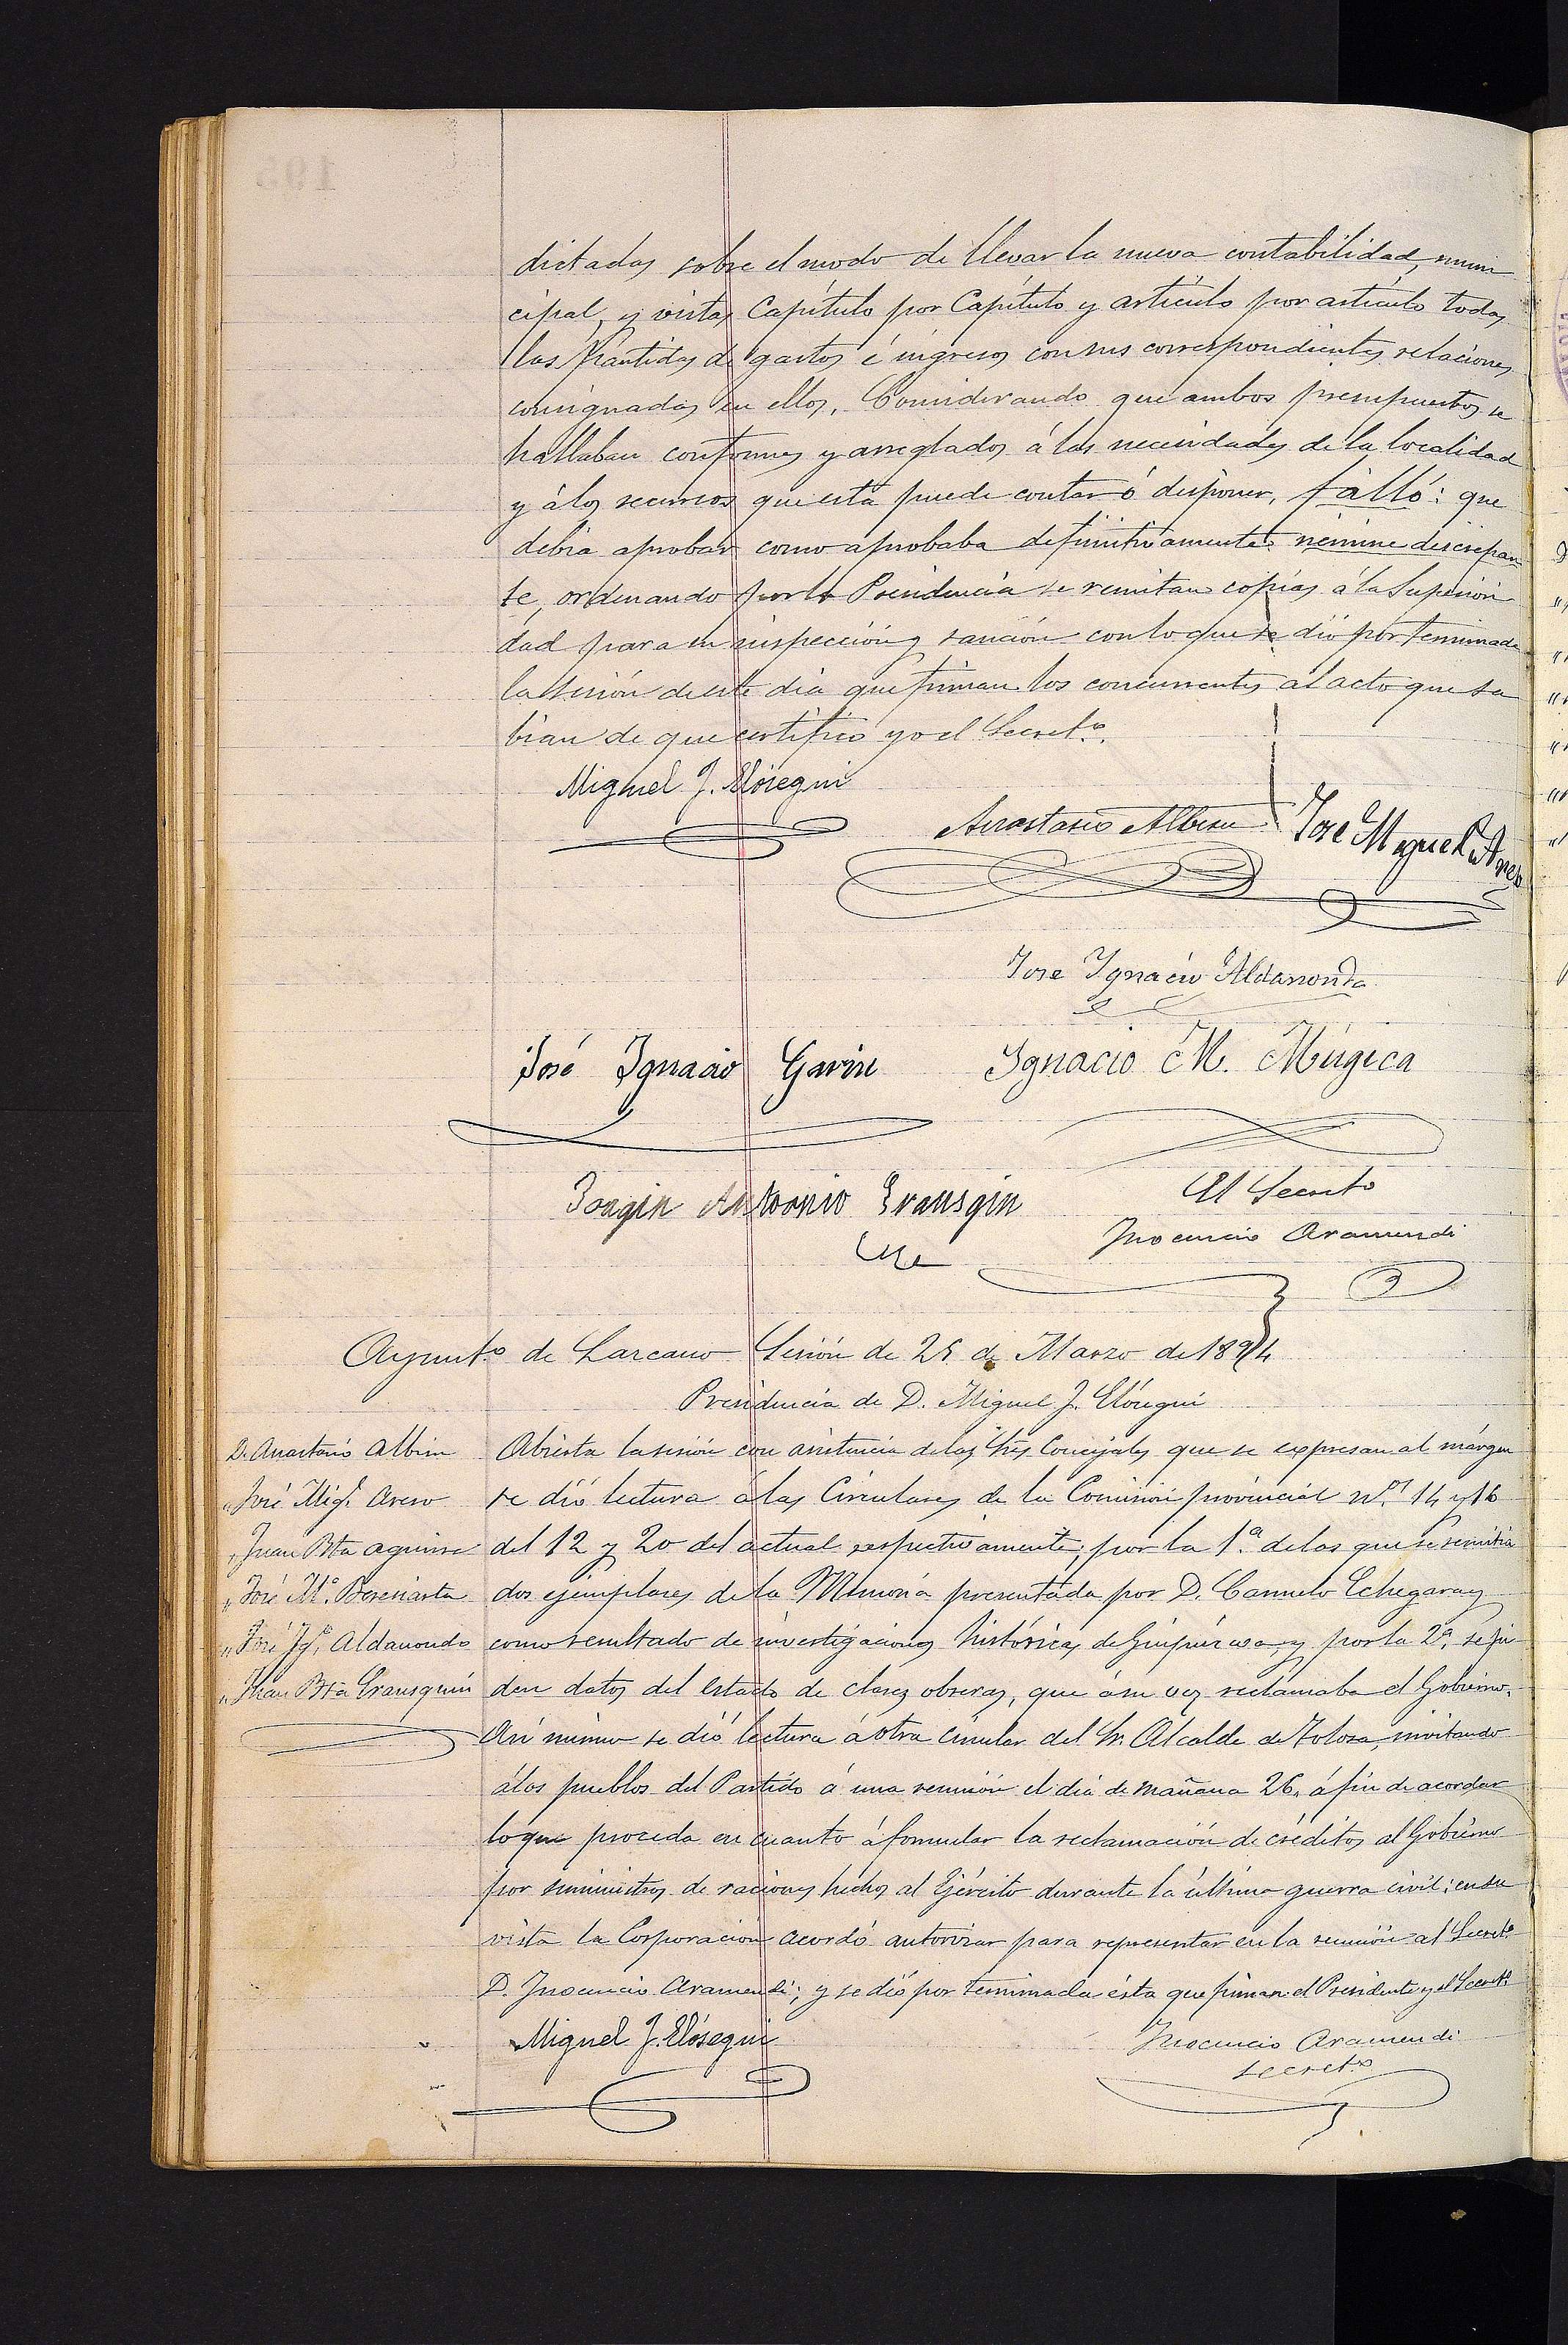 dictadas sobre el modo de llevar la nueva contabilidad, muni
cipal, y vistas Capítulo por Capítulo y artículo por artículo todas
las partidas de gastos é ingresos con sus correspondientes relaciones
consignadas en ellos, Considerando que ambos presupuestos se
hallaban conformes y arreglados á las necesidades de la localidad
y á los recursos que esta puede contar ó disponer, falló: que
debia aprobar como aprobaba definitivamente nemine discrepan
te, ordenando por la Presidencia se remitan copias á la Superiori
dad para su inspección y sanción con lo que se dió por terminada
la sesión de este dia que firman los concurrentes al acto que sa
bian de que certifico yo el Secret.º.
Miguel J. Elósegui
Anastasio Albisu José Miguel
Jose Ygnacio Aldanondo
José Ignacio Garin Ygnacio M. Múgica
Joaqin Antonio Yrausqin El Secretº
Inocencio Aramendi
Ayunt.º de Lazcano Sesión de 25 de Marzo de 1894
Presidencia de D. Miguel J. Elósegui
D. Anastasio Albisu
" José Mig.l
" Juan Bta Aguirre
" José M.ª Beresiarta
" José Yg.º Aldanondo
" Juan Bta Yrausquin
Abierta la sesión con asistencia de los Sres Concejales que se expresan al márgen
se dió lectura á las Circulares de la Comisión provincial n.os 14 y 16
del 12 y 20 del actual respectivamente; por la 1.ª de las que se remitia
dos ejemplares de la Memoria presentada por D. Carmelo Echegaray
como resultado de investigaciones históricas de Guipúzcoa, y por la 2.ª se pi
den datos del estado de clases obreras, que á su vez reclamaba el Gobierno.
Asi mismo se dió lectura á otra circular del Sr. Alcalde de Tolosa, invitando
á los pueblos del Partido á una reunión el dia de mañana 26, á fin de acordar
lo que proceda en cuanto á formular la reclamación de créditos al Gobierno
por suministros de raciones hechos al Ejército durante la última guerra civil; en su
vista la Corporación acordó autorizar para representar en la reunión al Secret.º
D. Inocencio Aramendi; y se dió por terminada ésta que firman el Presidente y el Secret.º
Miguel J. Elósegui Inocencio Aramendi
Secret.º